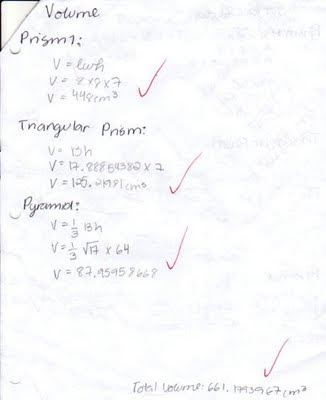 Volume
Prism 1:
V = lwh
V = 8 x 8 x 7
V = 448cm³
Triangular Prism:
V = Bh
V = 17.88854382 x 7
V = 125.21981 cm³
Pyramid:
V = 1/3 Bh
V = 1/3 √17 x 64
V = 87.95958668
Total Volume: 661.1793967 cm³